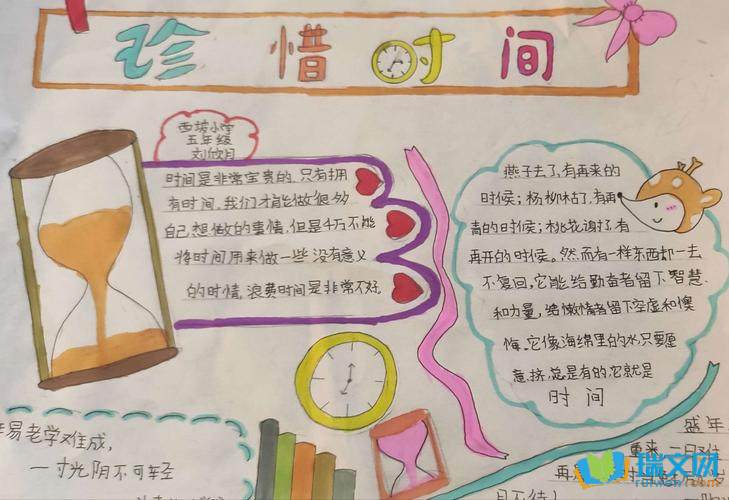 珍惜时间
西坡小学
五年级
刘欣月
时间是非常宝贵的,只有拥
有时间,我们才能做很多
自己想做的事情,但是千万不能
将时间用来做一些没有意义
的时情,浪费时间是非常不好
燕子去了,有再来的
时候;杨柳枯了,有再
青的时候;桃花谢了,有
再开的时候。然而有一样东西却一去
不复回,它能给勤奋者留下智慧
和力量,给懒惰者留下空虚和懊
悔。它像海绵里的水,只要愿
意挤,总是有的,它就是
时间
易老学难成,
一寸光阴不可轻
盛年
重来,一日
再
月不待人
瑞文网